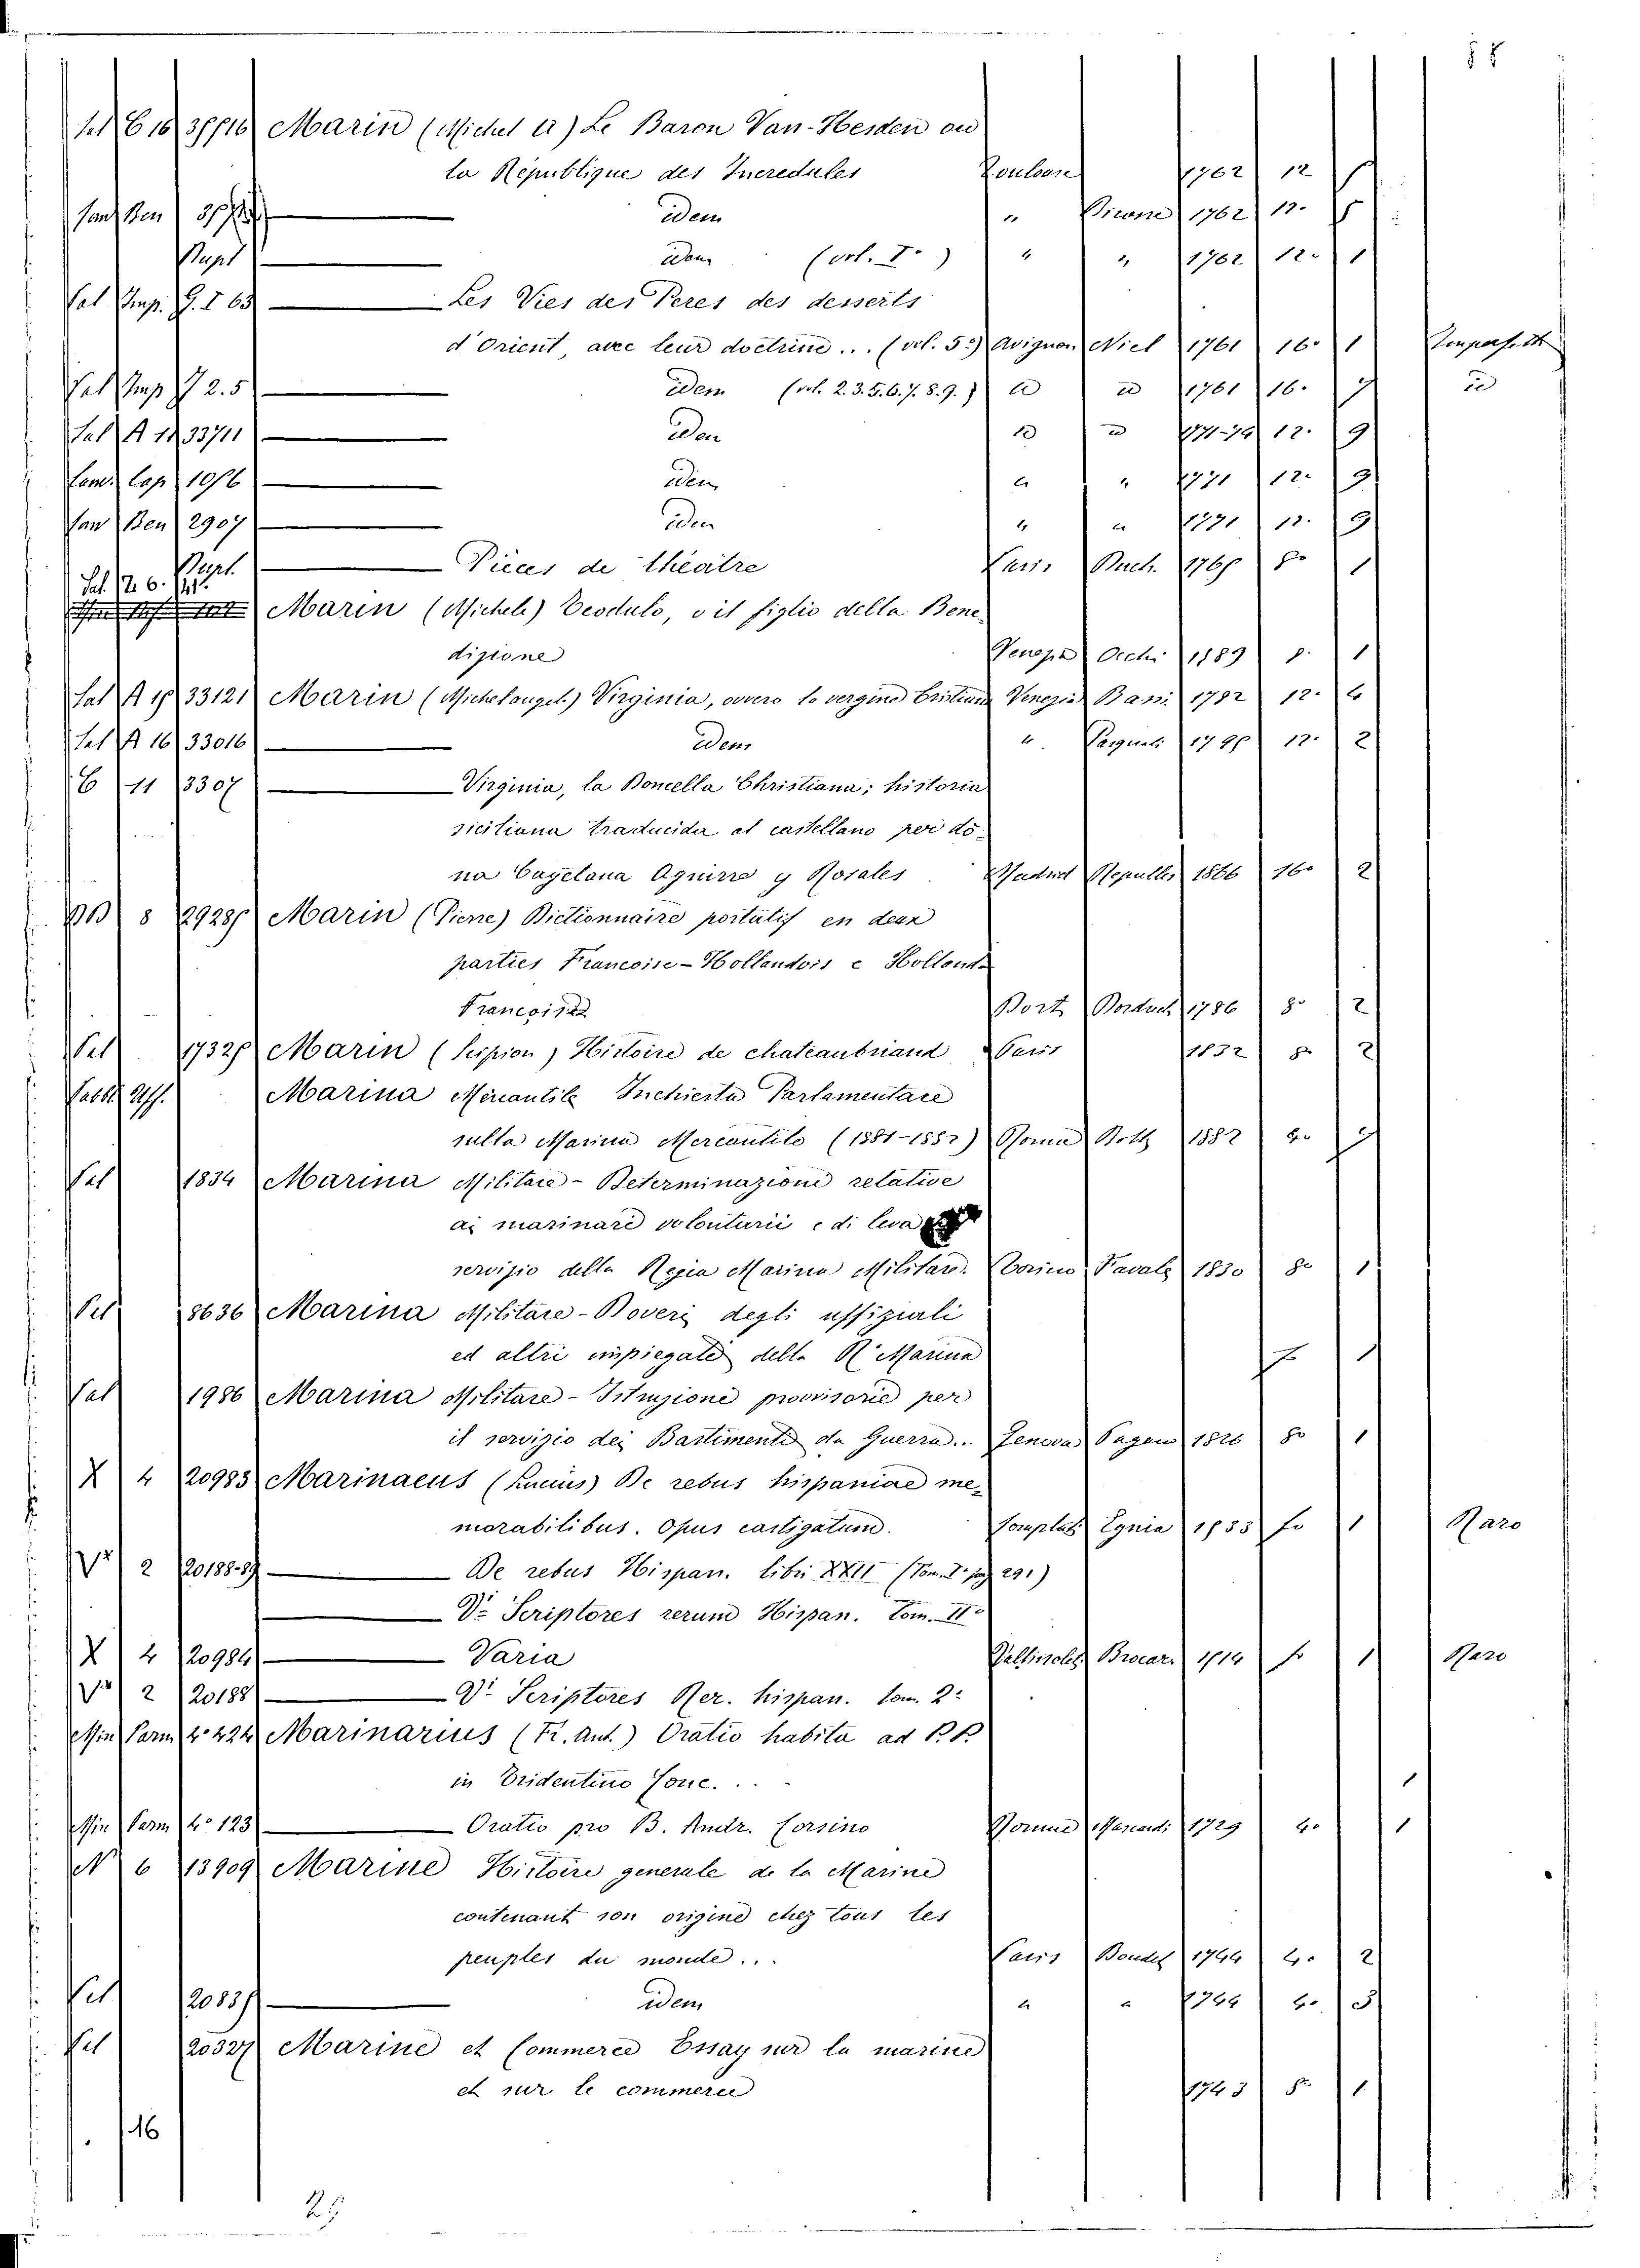 58
Sal C 16 Marin (Michel A) Le Baron Van-Hesden ou
la République des Incredules 1762 12
Sans Ben idem " 1762 12°
Dupl idem (vol. I°) " " 1762 12° 1
Sal Imp. Les Vies des Peres des desserts
d'Orient, avec leur doctrine... (vol. 5°) Avignon Niel 1761 16° 1 Imperfetto
Sal Imp 2.5 idem (vol. 2. 3. 5. 6. 7. 8. 9.) id id 1761 16° 7 id
Sal A 33711 idem id id 1771-74 12° 9
Com. Cap idem " " 1771 12° 9
San Ben 2907 idem " " 1771 12° 9
Dupl. Pièces de théatre Paris Duch. 1765 8° 1
Marin (Michele) Teodulo, o il figlio della Bene
dizione Venezia Occhi 1789 8° 1
Sal A 33121 Marin (Michelangel.) Virginia, ovvero la vergine Cristiana Venezia Bass. 1782 12° 4
Sal A 16 33016 idem " 12° 2
C 11 3307 Virginia, la Doncella Christiana; historia
siciliana traducida al castellano per do
na Cayetana Aguirre y Rosales Madrid Repulles 1866 16° 2
8 Marin (Pierre) Dictionnaire portatif en deux
parties Francoise-Hollandois e Hollande
Francoises Dort 1786 8° 2
Sal Marin (Scipion) Histoire de chateaubriand Paris 1832 8° 2
Marina Mercantile Inchiesta Parlamentare
sulla Marina Mercantile (1881-1882) Roma Botta 1882 4° 7
Sal 1834 Marina Militare - Determinazione relative
ai marinari volontarii e di leva
servizio della Regia Marina Militare. Torino Favale 1830 8° 1
Sal 8636 Marina Militare - Doveri degli uffiziali
ed altri impiegati della R. Marina 1
Sal 1986 Marina Militare - Istruzione provvisorie per
il servizio dei Bastimenti da Guerra... Genova Pagano 1826 8° 1
X 4 20983 Marinaeus (Lucius) De rebus hispaniae me-
morabilibus. Opus castigatum. Complut. Egnia 1533 fo 1 Raro
2 20188-89 De rebus Hispan. libri XXII (Tom. I° pag 291)
V. Scriptores rerum Hispan. Tom. II°
X 4 20984 Varia Vallisolet. Brocar. 1514 fo 1 Raro
2 20188 V. Scriptores Rer. hispan. tom. 2°
Min Parm 4° 424 Marinarius (Fr. Ant.) Oratio habita ad P.P.
in Tridentino Conc. ... 1
Min Parm 4° 123 Oratio pro B. Andr. Corsino Romae Mainardi 1729 4° 1
N 6 13909 Marine Histoire generale de la Marine
contenant son origine chez tous les
peuples du monde... Paris Boudet 1744 4° 2
Sal idem " " 1744 4° 3
Sal Marine et Commerce Essay sur la marine
et sur le commerce 1743 8° 1
16
25